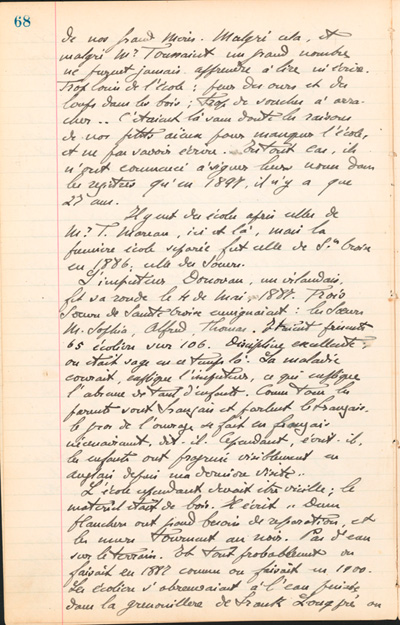 68
de nos grand'mères. Malgré cela, et
malgré Mr Toussaint un grand nombre
ne purent jamais apprendre à lire ni écrire.
Trop loin de l'école ; peur des ours et des
loups dans les bois ; trop de souches à arra-
cher .. C'étaient là sans doute les raisons
de nos petits aïeux pour manquer l'école,
et ne pas savoir écrire. En tout cas, ils
n'ont commencé à signer leurs noms dans
les registres qu'en 1897, il n'y a que
27 ans.
Il y eut des écoles après celles de
Mr T. Moreau, ici et là, mais la
première école séparée fut celle de Ste Croix
en 1886, celle des Soeurs.
L'inspecteur Donovan, un irlandais,
fit sa ronde le 4 de Mai, 1887. Trois
Soeurs de Sainte Croix enseignaient : les Soeurs
M. Sophia, Alfred, Thomas. Etaient présents
65 écoliers sur 106. Discipline excellente ;
on était sage en ce temps là. La maladie
courait, explique l'inspecteur, ce qui explique
l'absence de tant d'enfants. Comme tous les
parents sont français et parlent le français,
le gros de l'ouvrage se fait en français
nécessairement, dit-il. Cependant, écrit-il,
les enfants ont progressé visiblement en
anglais depuis ma dernière visite ..
L'école cependant devait être vieille ; le
matériel était de bois. Il écrit "Deux
planchers ont grand besoin de réparation, et
les murs tournent au noir. Pas d'eau
sur le terrain. Et tout probablement on
faisait en 1887 comme on faisait en 1900.
Les écoliers s'abreuvaient à l'eau puisée
dans la grenouillère de Frank Longpré ou